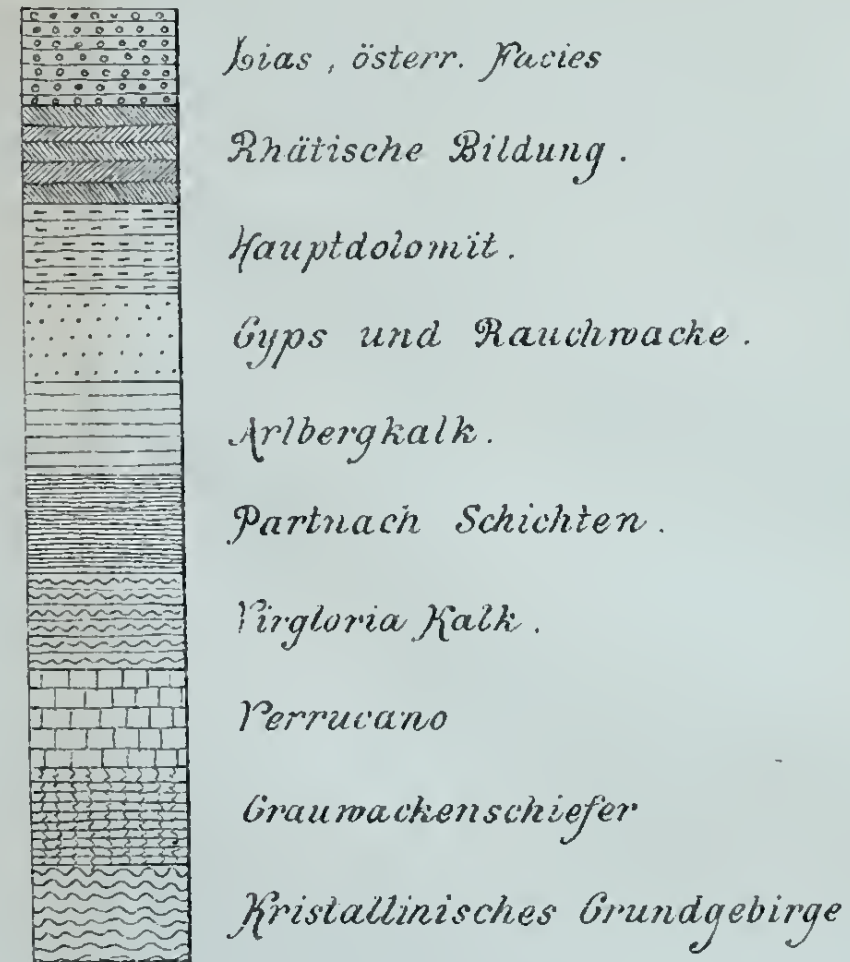 Lias, österr. Facies
Rhätische Bildung.
Hauptdolomit.
Gyps und Rauchwacke.
Arlbergkalk.
Partnach Schichten.
Virgloria Kalk.
Verrucano
Grauwackenschiefer
Kristallinisches Grundgebirge